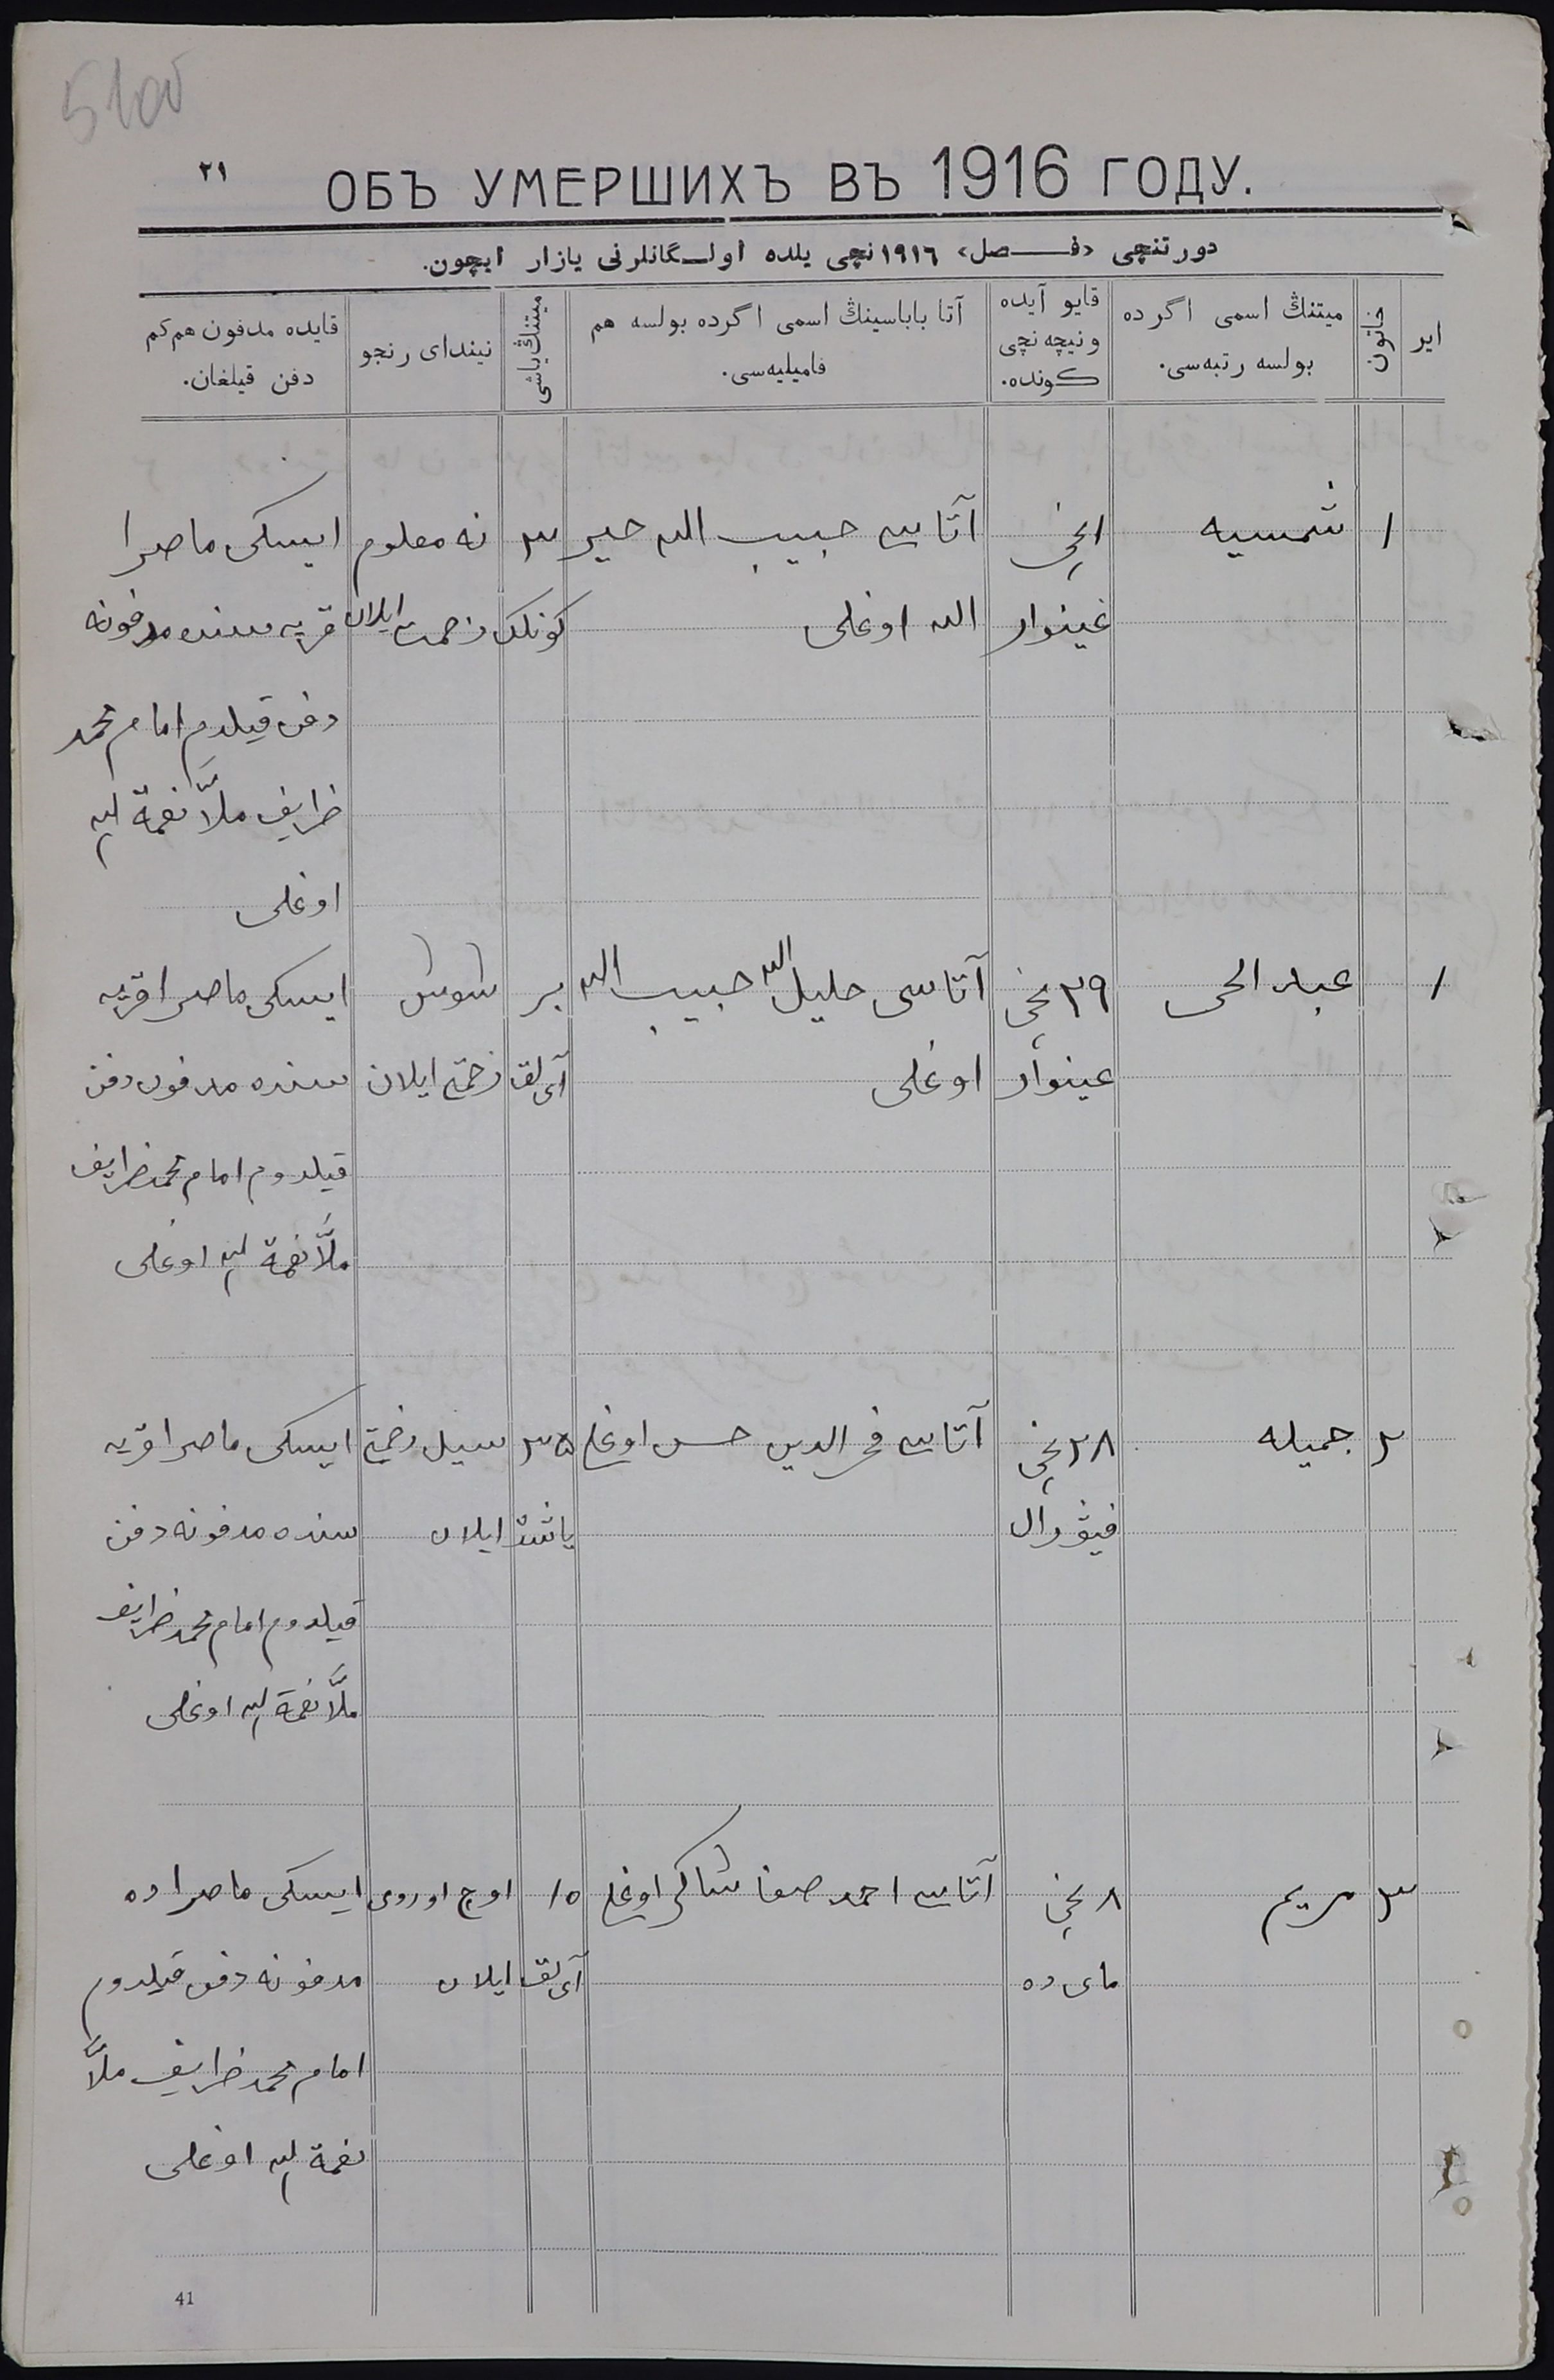 5100
٢١
ОБЪ УМЕРШИХЪ ВЪ 1916 ГОДУ.
دورتنچی «فـــصل» ١٩١٦نچی یلده اولــگانلرنی یازار ایچون.
ایر
خاتون
میتنڭ اسمی اگرده
بولسه رتبه‌سی.
قایو آیده
ونیچه نچی
کونده.
آتا باباسینڭ اسمی اگرده بولسه هم
فامیلیه‌سی.
میتنڭ یاشی
نیندای رنجو
قایده مدفون هم کم
دفن قیلغان.
١ شمسیه ١نچی آتاسی حبیب الله خیر ٣ نه معلوم ایسکی ماصرا
غینوار الله اوغلی کونلک زحمت ایلان قریه سنده مدفونه
دفن قیلدم امام محمد
ظرایف ملاّ نعمة الله
اوغلی
١ عبد الحی ٢٩نچی آتاسی خلیل الله حبیب الله بر شوش ایسکی ماصرا قریه
غینوار اوغلی آی لق زحمتی ایلان سنده مدفون دفن
قیلدوم امام محمد ظرایف
ملاّ نعمة الله اوغلی
٢ جمیله ٢٨نچی آتاسی فخر الدین حسن اوغلی ٢٥ سیل زحمتی ایسکی ماصرا قریه
فیۋرال یاشده ایلان سنده مدفونه دفن
قیلدوم امام محمد ظرایف
ملاّ نعمة الله اوغلی
٣ مریم ٨نچی آتاسی احمد صفا شاکر اوغلی ١٥ اوچ اوروی ایسکی ماصراده
مای ده آی لق ایلان مدفونه دفن قیلدوم
امام محمد ظرایف ملاّ
نعمة الله اوغلی
41